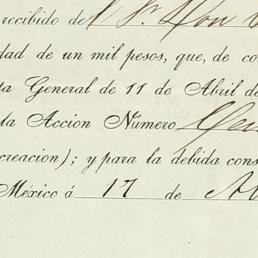 recibido de Sr. Don
dad de un mil pesos, que, de co
ta General de 11 de Abril d
la Accion Número
creacion); y para la debida cons
México á 17 de A